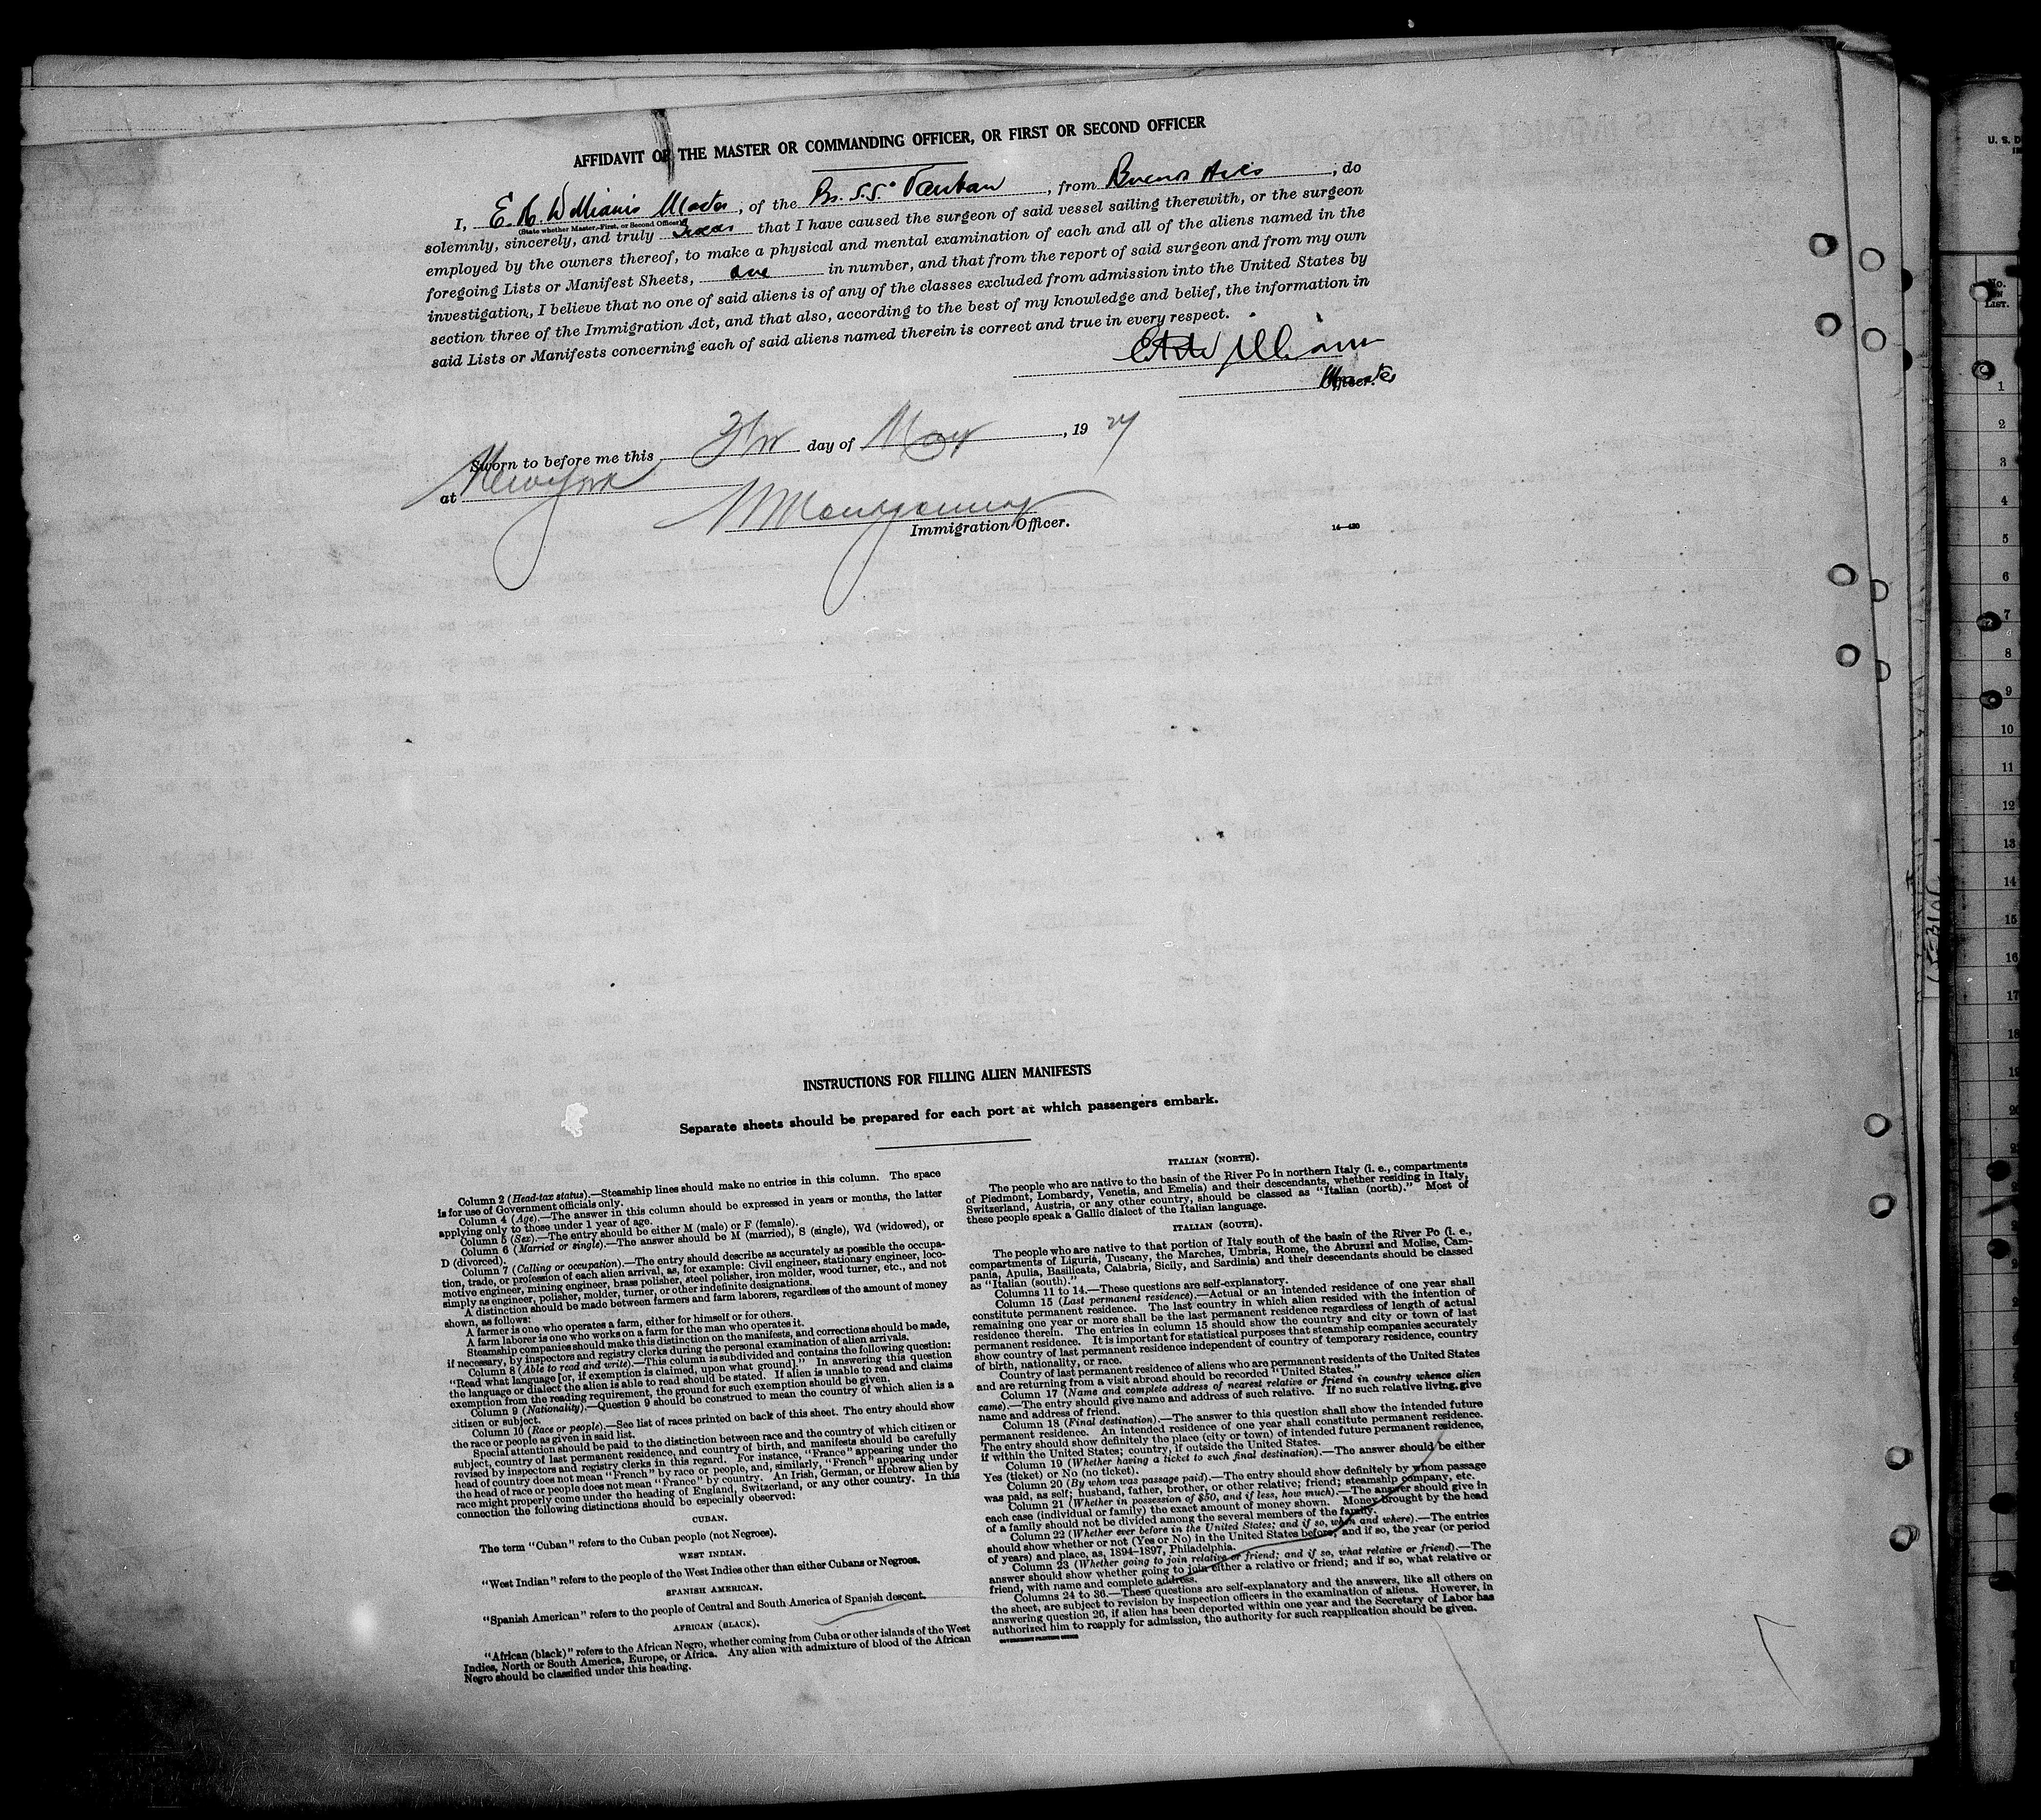 AFFIDAVIT OF THE MASTER OR COMMANDING OFFICER, OR FIRST OR SECOND OFFICER
I, E. A. Williams Master, of the Br. S.S. Vauban, from Buenos Aires, do
(State whether Master, First, or Second Officer.)
solemnly, sincerely, and truly Swear that I have caused the surgeon of said vessel sailing therewith, or the surgeon
employed by the owners thereof, to make a physical and mental examination of each and all of the aliens named in the
foregoing Lists or Manifest Sheets, one in number, and that from the report of said surgeon and from my own
investigation, I believe that no one of said aliens is of any of the classes excluded from admission into the United States by
section three of the Immigration Act, and that also, according to the best of my knowledge and belief, the information in
said Lists or Manifests concerning each of said aliens named therein is correct and true in every respect.
E A Williams
Master
Officer.
Sworn to before me this 31st day of May, 19 27
at New York
Montgomery
Immigration Officer.
14—420
INSTRUCTIONS FOR FILLING ALIEN MANIFESTS
Separate sheets should be prepared for each port at which passengers embark.
Column 2 (Head-tax status).—Steamship lines should make no entries in this column. The space
is for use of Government officials only.
Column 4 (Age).—The answer in this column should be expressed in years or months, the latter
applying only to those under 1 year of age.
Column 5 (Sex).—The entry should be either M (male) or F (female).
Column 6 (Married or single).—The answer should be M (married), S (single), Wd (widowed), or
D (divorced).
Column 7 (Calling or occupation).—The entry should describe as accurately as possible the occupa-
tion, trade, or profession of each alien arrival, as, for example: Civil engineer, stationary engineer, loco-
motive engineer, mining engineer, brass polisher, steel polisher, iron molder, wood turner, etc., and not
simply as engineer, polisher, molder, turner, or other indefinite designations.
A distinction should be made between farmers and farm laborers, regardless of the amount of money
shown, as follows:
A farmer is one who operates a farm, either for himself or for others.
A farm laborer is one who works on a farm for the man who operates it.
Steamship companies should make this distinction on the manifests, and corrections should be made,
if necessary, by inspectors and registry clerks during the personal examination of alien arrivals.
Column 8 (Able to read and write).—This column is subdivided and contains the following question:
"Read what language [or, if exemption is claimed, upon what ground]." In answering this question
the language or dialect the alien is able to read should be stated. If alien is unable to read and claims
exemption from the reading requirement, the ground for such exemption should be given.
Column 9 (Nationality).—Question 9 should be construed to mean the country of which alien is a
citizen or subject.
Column 10 (Race or people).—See list of races printed on back of this sheet. The entry should show
the race or people as given in said list.
Special attention should be paid to the distinction between race and the country of which citizen or
subject, country of last permanent residence, and country of birth, and manifests should be carefully
revised by inspectors and registry clerks in this regard. For instance, "France" appearing under the
head of country does not mean "French" by race or people, and, similarly, "French" appearing under
the head of race or people does not mean "France" by country. An Irish, German, or Hebrew alien by
race might properly come under the heading of England, Switzerland, or any other country. In this
connection the following distinctions should be especially observed:
CUBAN.
The term "Cuban" refers to the Cuban people (not Negroes).
WEST INDIAN.
"West Indian" refers to the people of the West Indies other than either Cubans or Negroes.
SPANISH AMERICAN.
"Spanish American" refers to the people of Central and South America of Spanish descent.
AFRICAN (BLACK).
"African (black)" refers to the African Negro, whether coming from Cuba or other islands of the West
Indies, North or South America, Europe, or Africa. Any alien with admixture of blood of the African
Negro should be classified under this heading.
ITALIAN (NORTH).
The people who are native to the basin of the River Po in northern Italy (i. e., compartments
of Piedmont, Lombardy, Venetia, and Emelia) and their descendants, whether residing in Italy,
Switzerland, Austria, or any other country, should be classed as "Italian (north)." Most of
these people speak a Gallic dialect of the Italian language.
ITALIAN (SOUTH).
The people who are native to that portion of Italy south of the basin of the River Po (i. e.,
compartments of Liguria, Tuscany, the Marches, Umbria, Rome, the Abruzzi and Molise, Cam-
pania, Apulia, Basilicata, Calabria, Sicily, and Sardinia) and their descendants should be classed
as "Italian (south)."
Columns 11 to 14.—These questions are self-explanatory.
Column 15 (Last permanent residence).—Actual or an intended residence of one year shall
constitute permanent residence. The last country in which alien resided with the intention of
remaining one year or more shall be the last permanent residence regardless of length of actual
residence therein. The entries in column 15 should show the country and city or town of last
permanent residence. It is important for statistical purposes that steamship companies accurately
show country of last permanent residence independent of country of temporary residence, country
of birth, nationality, or race.
Country of last permanent residence of aliens who are permanent residents of the United States
and are returning from a visit abroad should be recorded "United States."
Column 17 (Name and complete address of nearest relative or friend in country whence alien
came).—The entry should give name and address of such relative. If no such relative living, give
name and address of friend.
Column 18 (Final destination).—The answer to this question shall show the intended future
permanent residence. An intended residence of one year shall constitute permanent residence.
The entry should show definitely the place (city or town) of intended future permanent residence,
if within the United States; country, if outside the United States.
Column 19 (Whether having a ticket to such final destination).—The answer should be either
Yes (ticket) or No (no ticket).
Column 20 (By whom was passage paid).—The entry should show definitely by whom passage
was paid, as self; husband, father, brother, or other relative; friend; steamship company, etc.
Column 21 (Whether in possession of $50, and if less, how much).—The answer should give in
each case (individual or family) the exact amount of money shown. Money brought by the head
of a family should not be divided among the several members of the family.
Column 22 (Whether ever before in the United States; and if so, when and where).—The entries
should show whether or not (Yes or No) in the United States before, and if so, the year (or period
of years) and place, as, 1894–1897, Philadelphia.
Column 23 (Whether going to join relative or friend; and if so, what relative or friend).—The
answer should show whether going to join either a relative or friend; and if so, what relative or
friend, with name and complete address.
Columns 24 to 36.—These questions are self-explanatory and the answers, like all others on
the sheet, are subject to revision by inspection officers in the examination of aliens. However, in
answering question 26, if alien has been deported within one year and the Secretary of Labor has
authorized him to reapply for admission, the authority for such reapplication should be given.
GOVERNMENT PRINTING OFFICE
U. S. D
No.
ON
LIST.
1
2
3
4
5
6
7
8
9
10
11
12
13
14
15
16
17
18
19